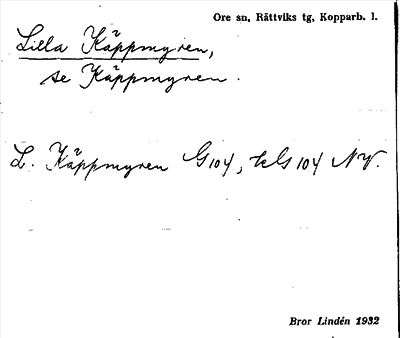 Ore sn, Rättviks tg, Kopparb. l.
Lilla Käppmyren,
se Käppmyren.
L. Käppmyren G104, kG 104 NV.
Bror Lindén 1932